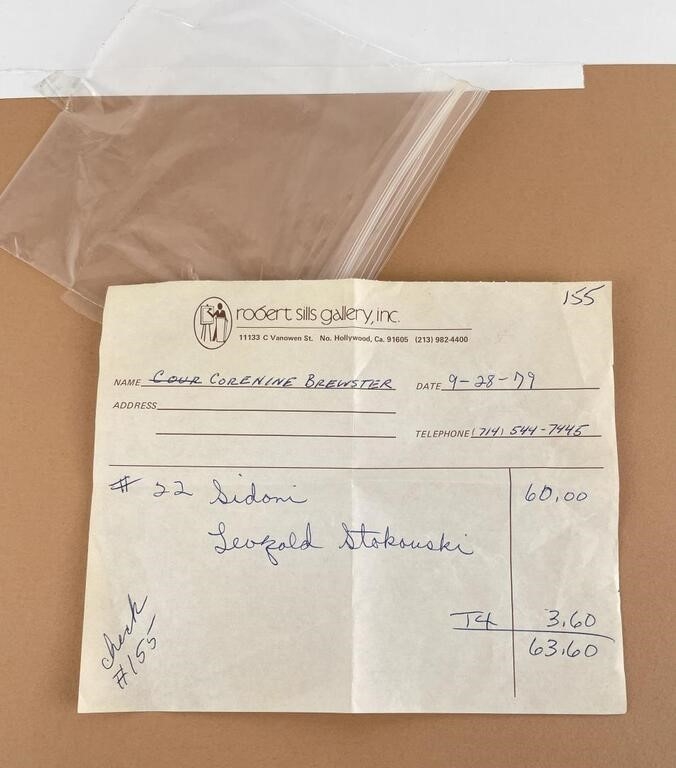 155
robert sills gallery, inc.
11133 C Vanowen St. No. Hollywood, Ca. 91605 (213) 982-4400
NAME Cour Corenine Brewster DATE 9-28-79
ADDRESS
TELEPHONE (714) 544-7445
# 22 Sidoni 60.00
Leopold Stokowski
T4 3.60
63.60
check
#155